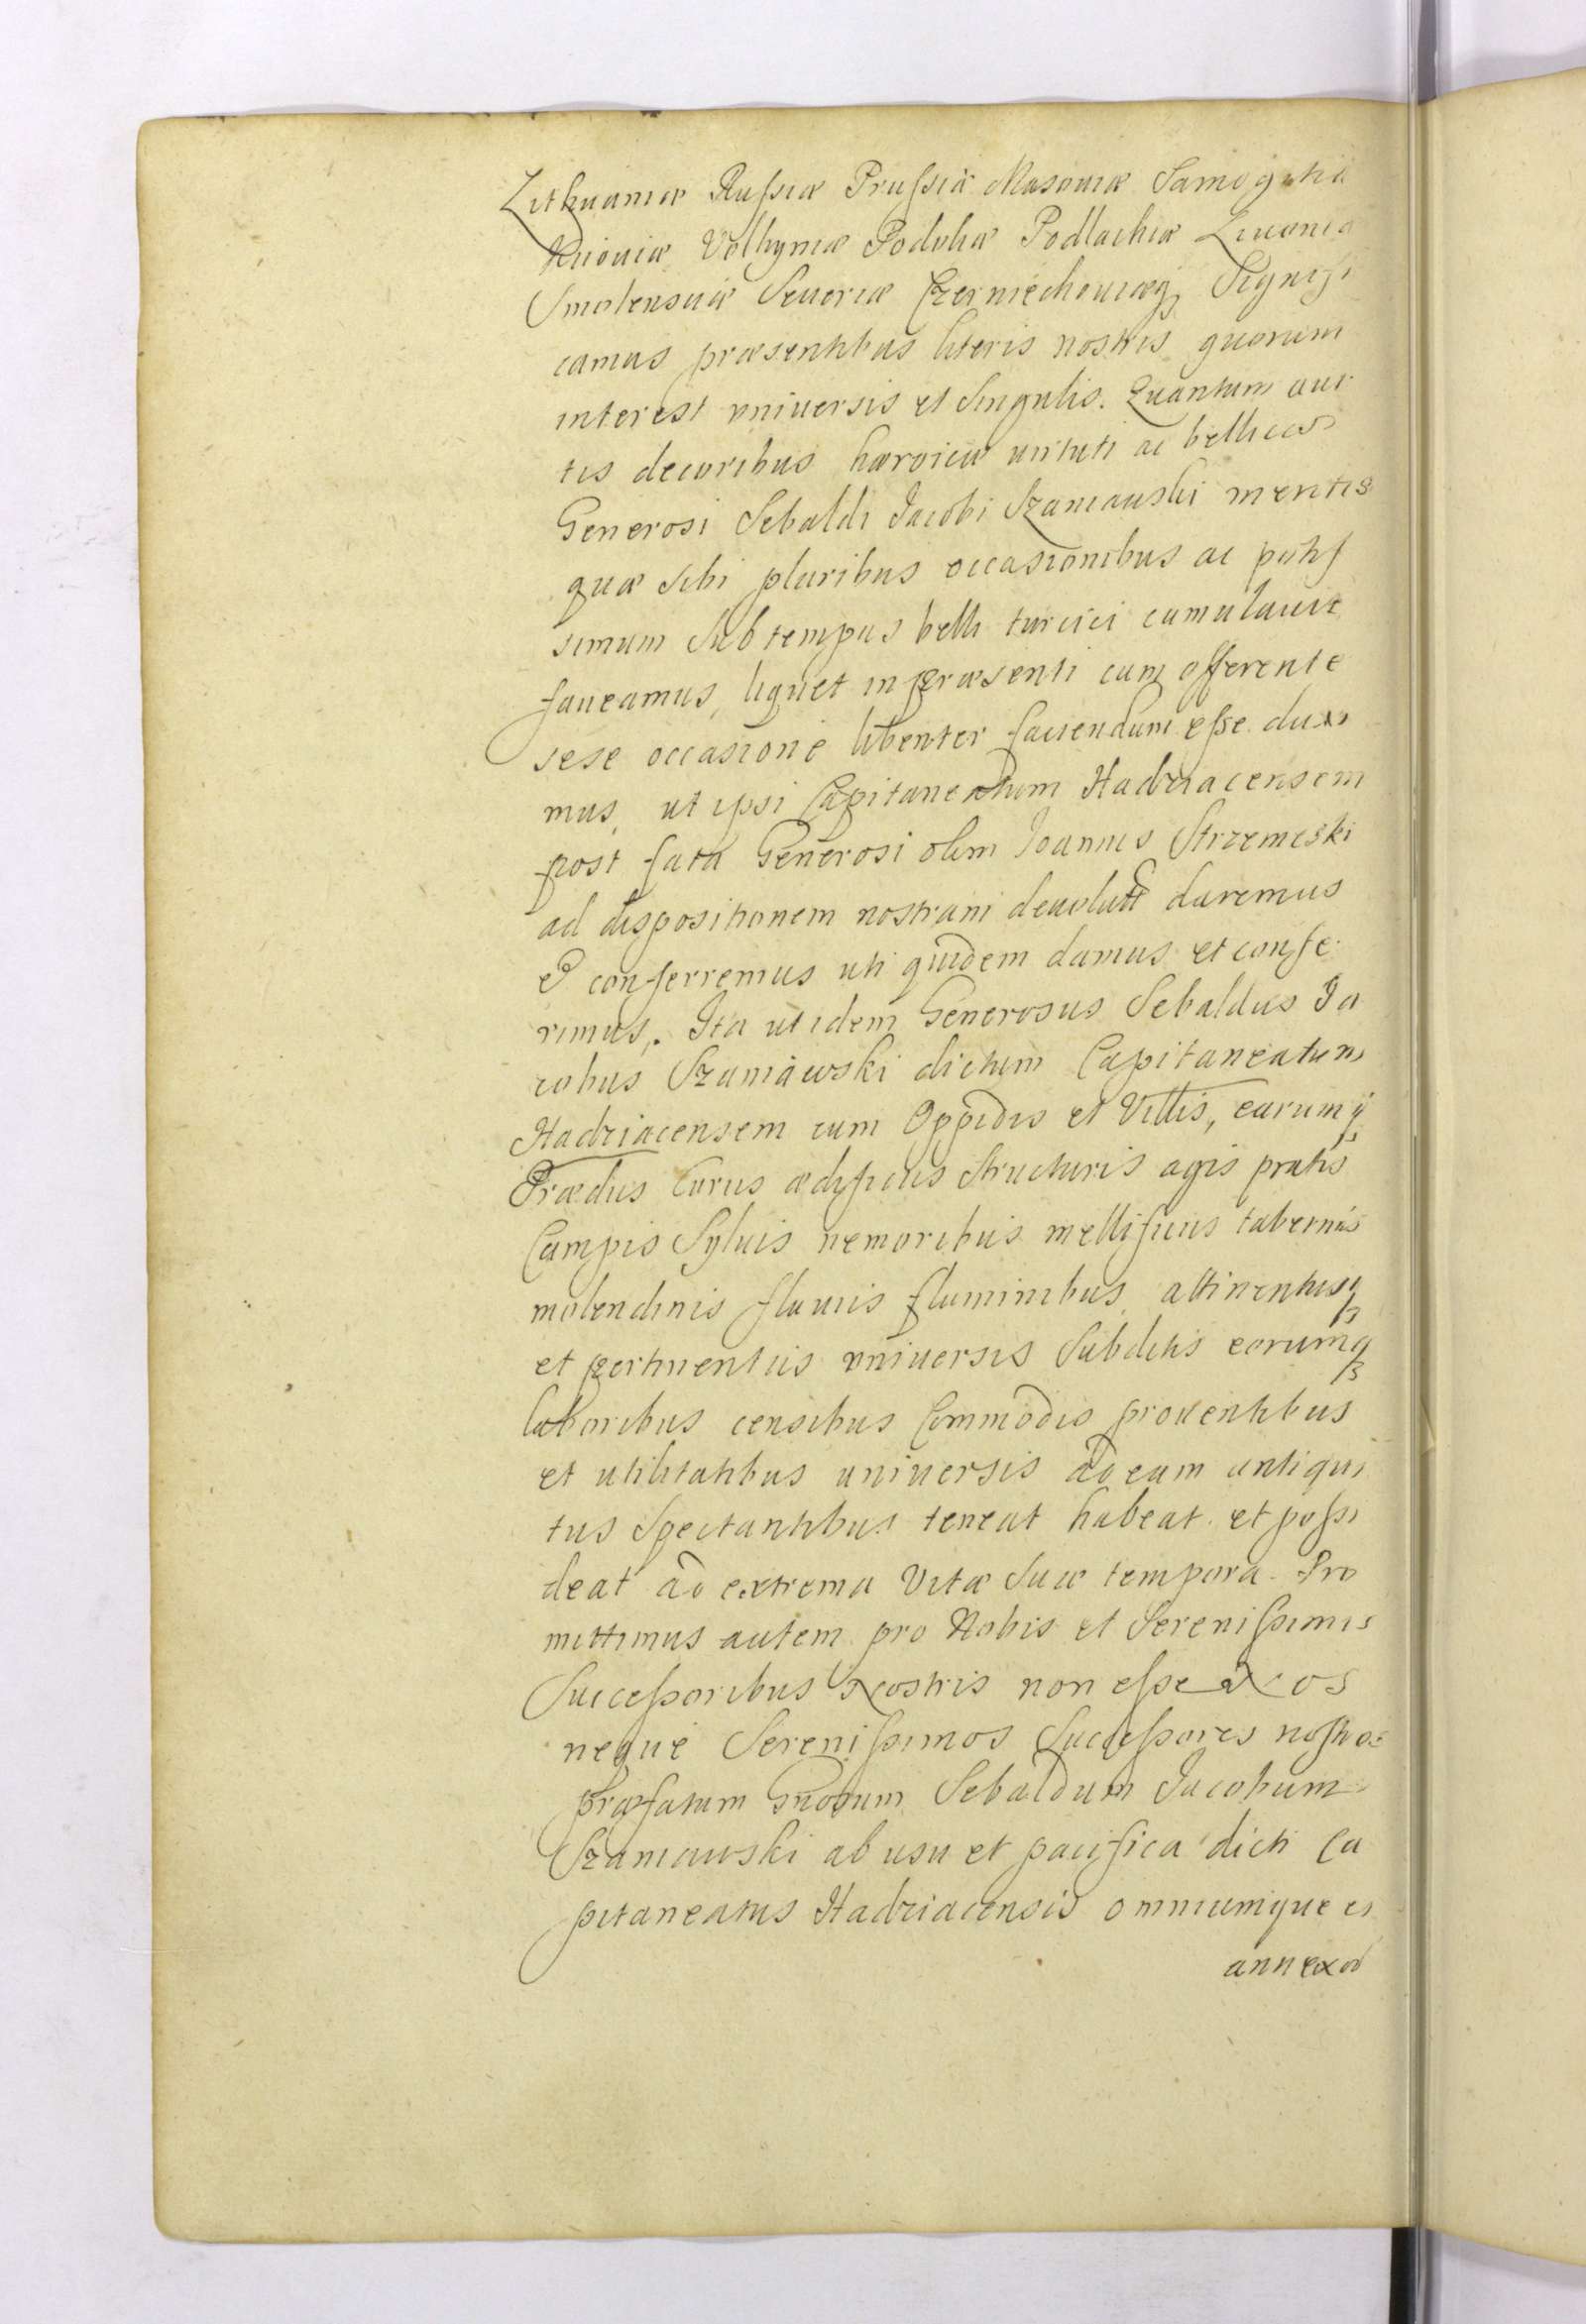 Lithuaniæ Russiæ Prussiæ Masouiæ Samogitiæ
Kiiouiæ Volhyniæ Podoliæ Podlachiæ Liuoniæ
Smolensciæ Seueriæ Czerniechouiæq3 Signifi
camus præsentibus literis nostris quorum
interest vniuersis et singulis. Quantum aui
tis decoribus hæroicæ uirtuti ac bellicis
Generosi Sebaldi Jacobi Szaniauski meritis
quæ sibi pluribus occasionibus ac potis
simum sub tempus belli turcici cumulauit
faueamus, liquet in præsenti cum offerente
sese occasione libenter faciendum esse duxi
mus, ut ipsi Capitaneatum Hadziacensem
post fata Generosi olim Joannis Strzemeski
ad dispositionem nostram deuolutu daremus
et conferremus uti quidem damus et confe
rimus. Ita ut idem Generosus Sebaldus Ja
cobus Szaniawski dictum Capitaneatum
Hadziacensem cum Oppidis et Villis, earumq3
Prædiis Curiis ædificiis structuris agis pratis
Campis Syluis nemoribus mellificiis tabernis
molendinis fluuiis fluminibus attinentiisq3
et pertinentiis vniuersis Subditis eorumq3
laboribus censibus Commodis prouentibus
et utilitatibus uniuersis ad eam antiqui
tus spectantibus teneat habeat et possi
deat ad extrema Vitæ suæ tempora. Pro
mittimus autem pro Nobis et Serenissimis
Successoribus Nostris non esse Nos
neque Serenissimos Successores nostros
præfatum Gnosum Sebaldum Jacobum
Szaniawski ab usu et pacifica dicti Ca
pitaneatus Hadziacensis omniumque ei
annexor